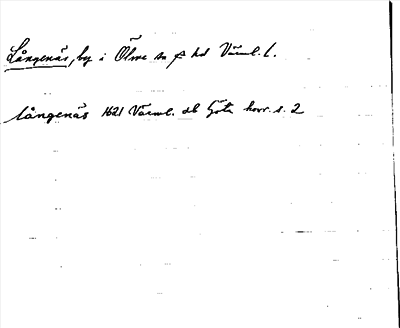 Långenäs, by i Ölme sn o hd Värml. l.
långenäs 1621 Värml. ub Göta hovr. s. 2